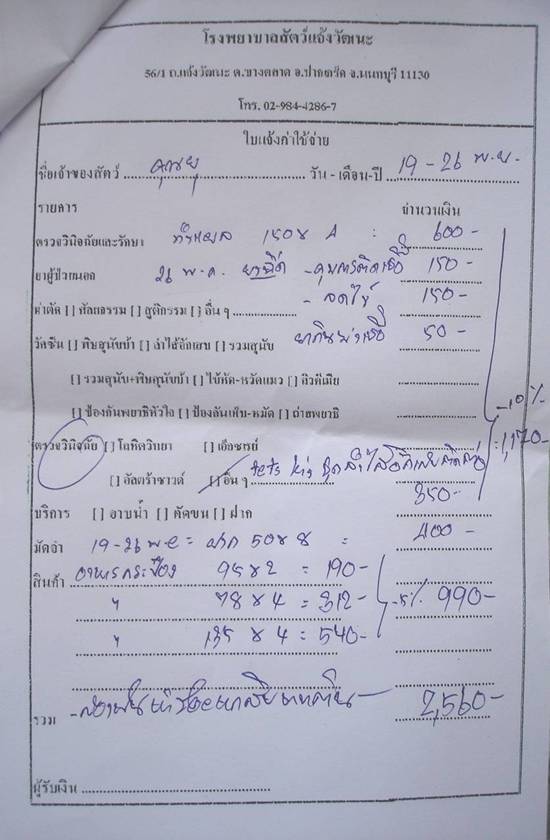 โรงพยาบาลสัตว์แจ้งวัฒนะ
56/1 ถ.แจ้งวัฒนะ ต.บางตลาด อ.ปากเกร็ด จ.นนทบุรี 11130
โทร. 02-984-4286-7
ใบแจ้งค่าใช้จ่าย
ชื่อเจ้าของสัตว์ วัน - เดือน-ปี 19 - 26 พ.ย.
รายการ จำนวนเงิน
ตรวจวินิจฉัยและรักษา ทำแผล 150 x 4 = 600-
ยาผู้ป่วยนอก 26 พ.ย. ยาฉีด - คุมการติดเชื้อ 150-
ผ่าตัด [ ] ศัลยกรรม [ ] สูติกรรม [ ] อื่น ๆ - ลดไข้ 150-
วัคซีน [ ] พิษสุนัขบ้า [ ] ลำไส้อักเสบ [ ] รวมสุนัข ยากินฆ่าเชื้อ 50-
[ ] รวมสุนัข+พิษสุนัขบ้า [ ] ไข้หัด-หวัดแมว [ ] ลิวคีเมีย
[ ] ป้องกันพยาธิหัวใจ [ ] ป้องกันเห็บ-หมัด [ ] ถ่ายพยาธิ -10%
ตรวจวินิจฉัย [ ] โลหิตวิทยา [ ] เอ็กซเรย์ =1,170-
[ ] อัลตร้าซาวด์ [ ] อื่น ๆ 350-
บริการ [ ] อาบน้ำ [ ] ตัดขน [ ] ฝาก
มัดจำ 19-26 พ.ย = ฝาก 50 x 8 = 400-
สินค้า อาหารกระป๋อง 95 x 2 = 190-
" 78 x 4 = 312- -5% 990-
" 135 x 4 = 540-
รวม 2,560-
ผู้รับเงิน